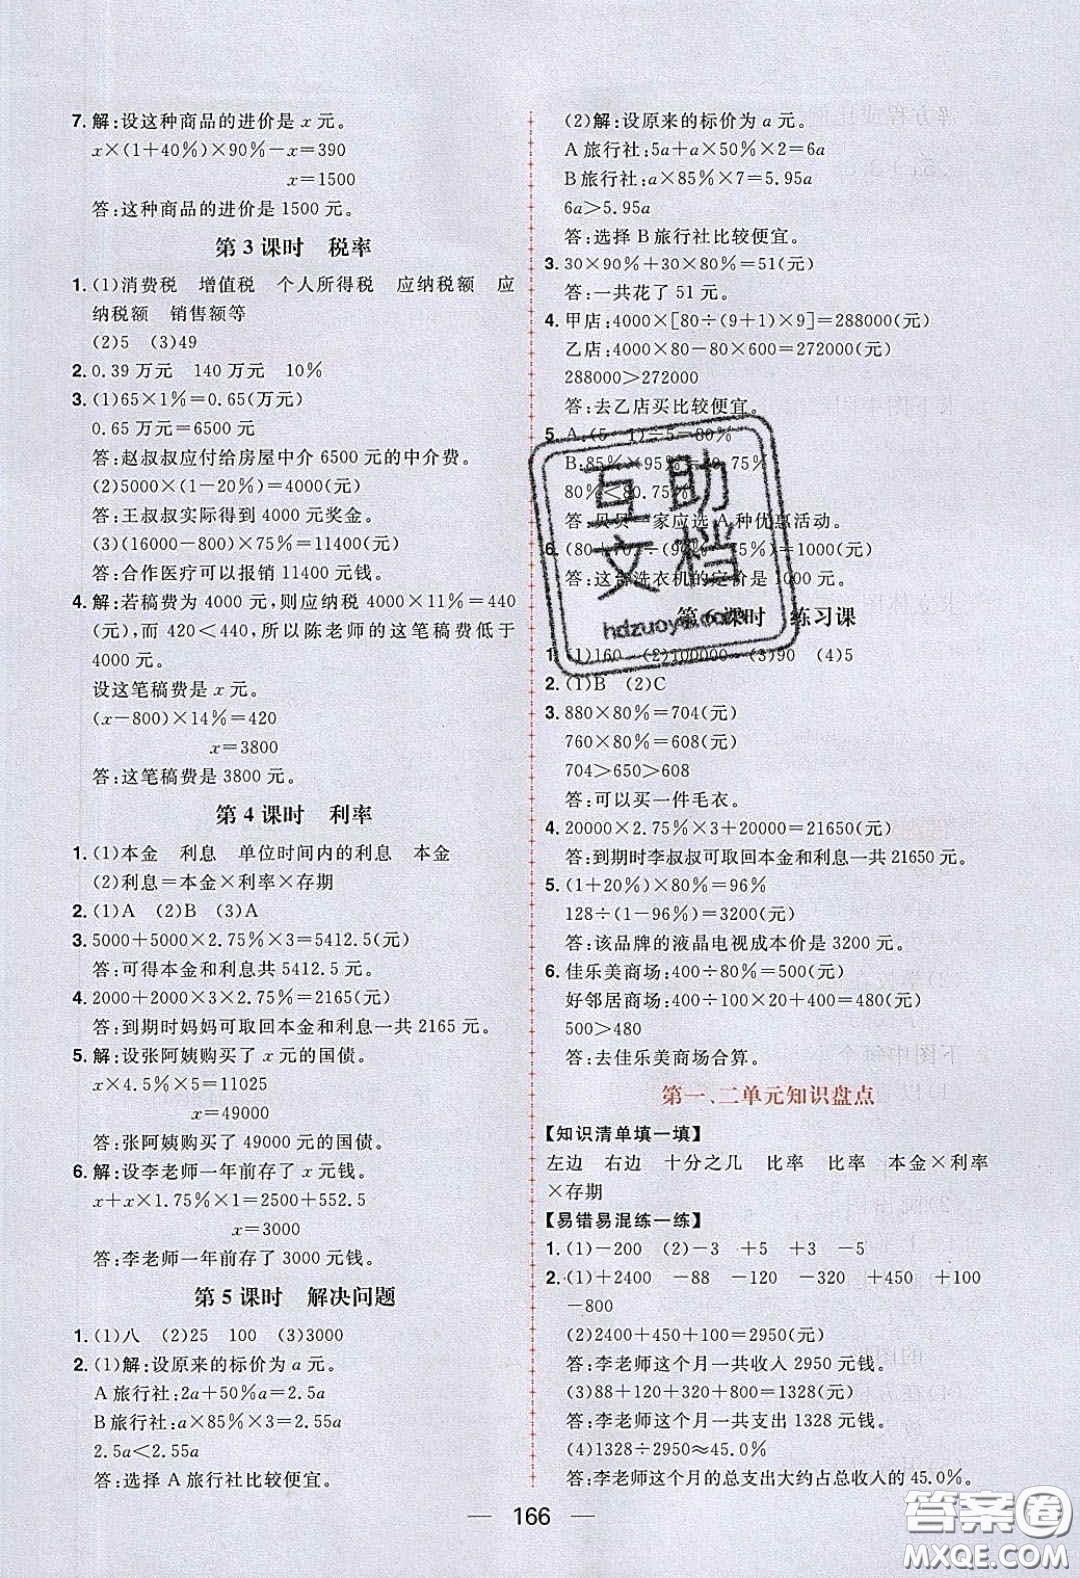 7. 解:设这种商品的进价是 x 元。
x×(1+40%)×90%－x=390
x=1500
答:这种商品的进价是 1500 元。
第 3 课时　税率
1. (1)消费税　增值税　个人所得税　应纳税额　应
纳税额　销售额等
(2)5　(3)49
2. 0.39 万元　140 万元　10%
3. (1)65×1%=0.65(万元)
0.65 万元=6500 元
答:赵叔叔应付给房屋中介 6500 元的中介费。
(2)5000×(1－20%)=4000(元)
答:王叔叔实际得到 4000 元奖金。
(3)(16000－800)×75%=11400(元)
答:合作医疗可以报销 11400 元钱。
4. 解:若稿费为 4000 元,则应纳税 4000×11%=440
(元),而 420<440,所以陈老师的这笔稿费低于
4000 元。
设这笔稿费是 x 元。
(x－800)×14%=420
x=3800
答:这笔稿费是 3800 元。
第 4 课时　利率
1. (1)本金　利息　单位时间内的利息　本金
(2)利息=本金×利率×存期
2. (1)A　(2)B　(3)A
3. 5000+5000×2.75%×3=5412.5(元)
答:可得本金和利息共 5412.5 元。
4. 2000+2000×3×2.75%=2165(元)
答:到期时妈妈可取回本金和利息一共 2165 元。
5. 解:设张阿姨购买了 x 元的国债。
x×4.5%×5=11025
x=49000
答:张阿姨购买了 49000 元的国债。
6. 解:设李老师一年前存了 x 元钱。
x+x×1.75%×1=2500+552.5
x=3000
答:李老师一年前存了 3000 元钱。
第 5 课时　解决问题
1. (1)八　(2)25　100　(3)3000
2. (1)解:设原来的标价为 a 元。
A 旅行社:2a+50%a=2.5a
B 旅行社:a×85%×3=2.55a
2.5a<2.55a
答:选择 A 旅行社比较便宜。
(2)解:设原来的标价为 a 元。
A 旅行社:5a+a×50%×2=6a
B 旅行社:a×85%×7=5.95a
6a>5.95a
答:选择 B 旅行社比较便宜。
3. 30×90%+30×80%=51(元)
答:一共花了 51 元。
4. 甲店:4000×[80÷(9+1)×9]=288000(元)
乙店:4000×80－80×600=272000(元)
288000>272000
答:去乙店买比较便宜。
5. A:(5－1)÷5=80%
B:85%×95%=80.75%
80%<80.75%
答:贝贝一家应选 A 种优惠活动。
6. (80+70)÷(90%－75%)=1000(元)
答:这台洗衣机的定价是 1000 元。
第 6 课时　练习课
1. (1)160　(2)100000　(3)90　(4)5
2. (1)B　(2)C
3. 880×80%=704(元)
760×80%=608(元)
704>650>608
答:可以买一件毛衣。
4. 20000×2.75%×3+20000=21650(元)
答:到期时李叔叔可取回本金和利息一共 21650 元。
5. (1+20%)×80%=96%
128÷(1－96%)=3200(元)
答:该品牌的液晶电视成本价是 3200 元。
6. 佳乐美商场:400÷80%=500(元)
好邻居商场:400÷200×40+400=480(元)
500>480
答:去佳乐美商场合算。
第一、二单元知识盘点
【知识清单填一填】
左边　右边　十分之几　比率　比率　本金×利率
×存期
【易错易混练一练】
1. (1)－200　(2)－3　+5　+3　－5
2. (1)+2400　－88　－120　－320　+450　+100
－800
(2)2400+450+100=2950(元)
答:李老师这个月一共收入 2950 元钱。
(3)88+120+320+800=1328(元)
答:李老师这个月一共支出 1328 元钱。
(4)1328÷2950≈45.0%
答:李老师这个月的总支出大约占总收入的 45.0%。
— 166 —
互助
文档
答案圈
MXQE.COM